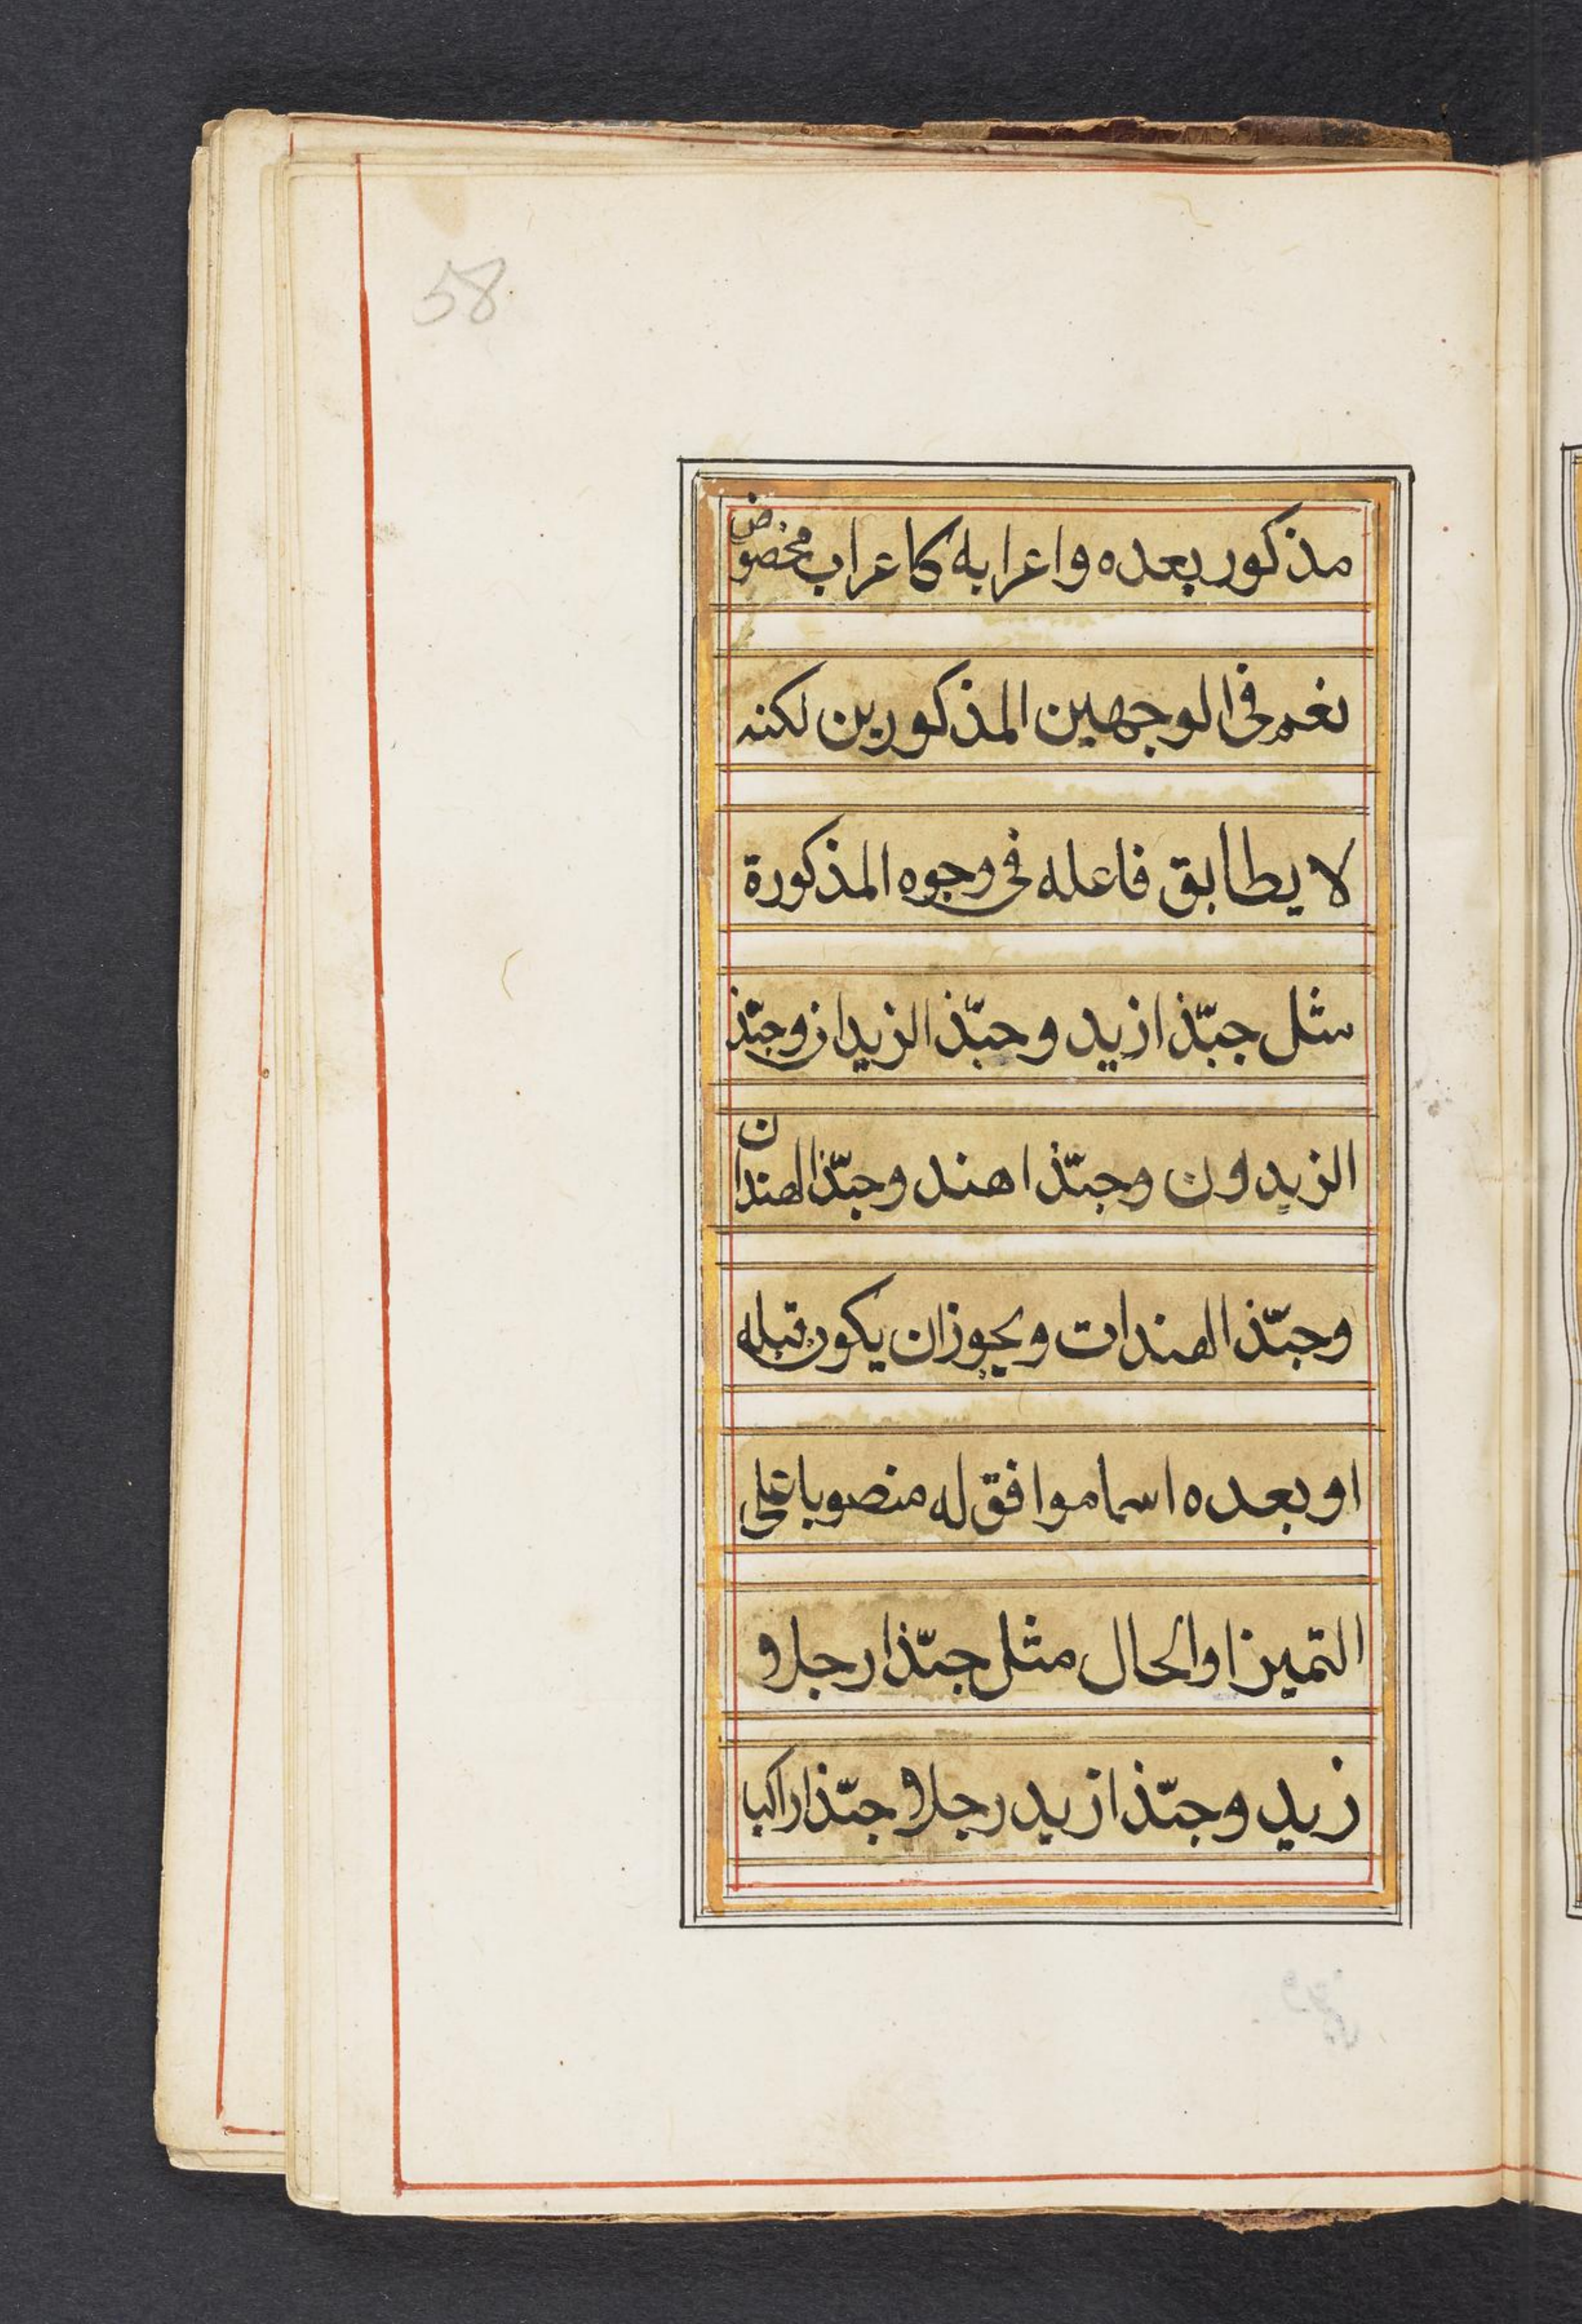 58
مذكور بعده واعرابه كاعراب مخصوص
نعم فى الوجهين المذكورين لكنه
لا يطابق فاعله فى وجوه المذكورة
مثل حبّذا زيد وحبّذا الزيدان وحبّذ
الزيدون وحبّذا هند وحبّذا الهندان
وحبّذا الهندات ويجوز ان يكون قبله
او بعده اسما موافق له منصوبا على
التميز او الحال مثل حبّذا رجلا و
زيد وحبّذا زيد رجلا وحبّذا راكبا